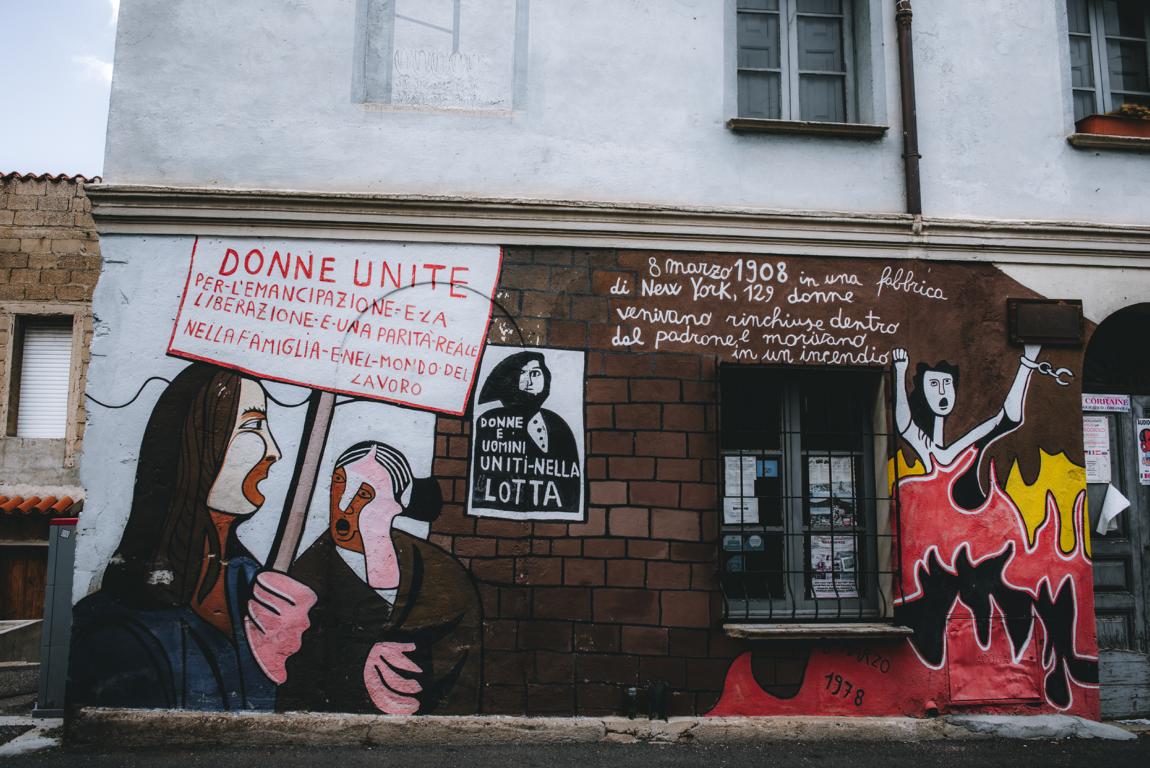 DONNE UNITE
PER-L'EMANCIPAZIONE-E-LA
LIBERAZIONE-E-UNA PARITÀ-REALE
NELLA FAMIGLIA-E-NEL-MONDO-DEL
LAVORO
DONNE
E
UOMINI
UNITI-NELLA
LOTTA
8 marzo 1908 in una fabbrica
di New York, 129 donne
venivano rinchiuse dentro
dal padrone, e morivano
in un incendio
MARZO
1978
CORRAINE